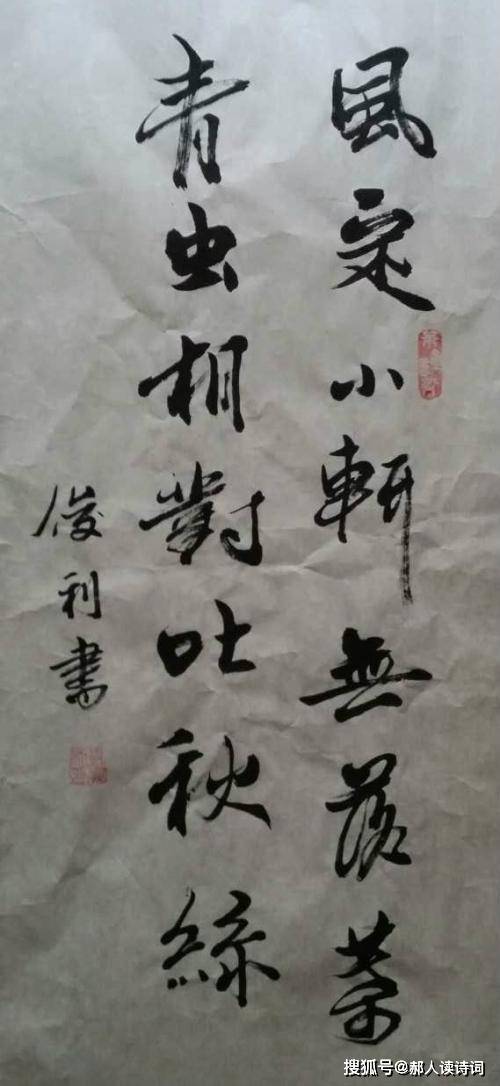 風定小軒無落葉
青虫相對吐秋絲
俊利書
搜狐号@郝人读诗词